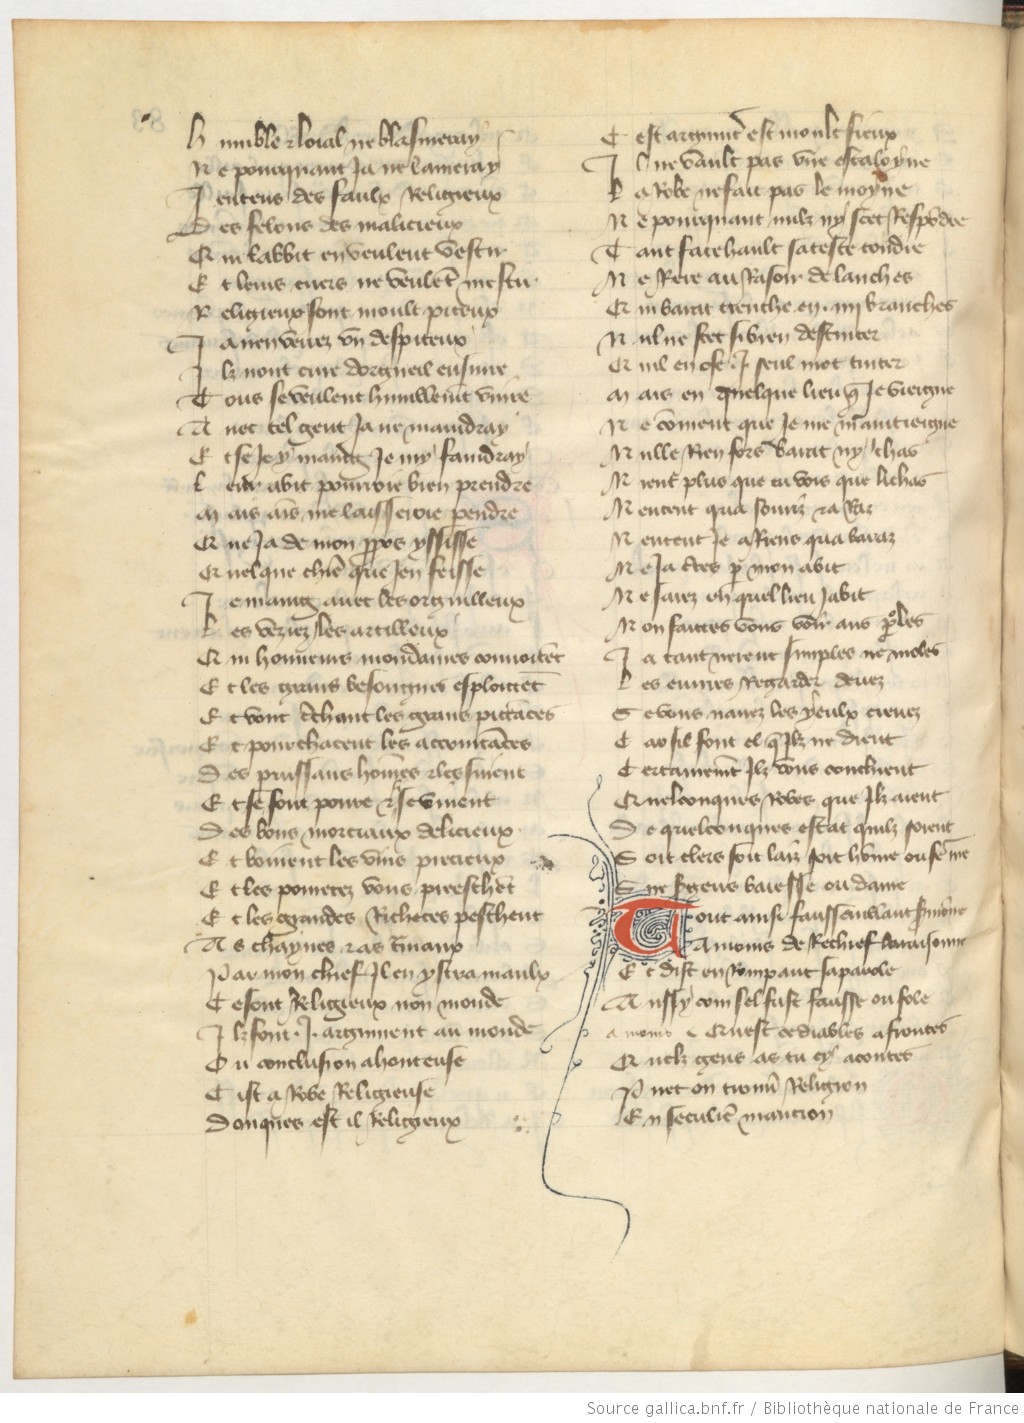 H umble & loial ne blasmeray
N e pourquant Ja ne lameray
J entens des faulx Religieux
D es felons des malicieux
Q ui labbit en veulent vestir
E t leurs cuers ne veulēt mestir
R eligieux sont moult piteux
J a nen verrez vn despiteux
J lz nont cure dorgueil ensuiure
T ous se veulent humblemēt viure
A uec tel gent Ja ne maindray
E t se Je y maing Je my faindray
L eur abit pourroie bien prendre
M ais ains me laisseroie pendre
Q ue Ja de mon ppos yssisse
Q uelque chiere que Jen feisse
J e maing auec les orguilleux
L es veziez les artilleux
Q ui honneurs mondaines couuoitēt
E t les grans besongnes esploictēt
E t vont cerchant les grans pictāces
E t pourchacent les accointāces
D es puissans hōmes & les suiuent
E t se font poure & se viuent
D es bons morceaux delicieux
E t boiuent les vins precieux
E t les pouretez vous preeschēt
E t les grandes Richeces peschent
A s chaynes & as tramaux
P ar mon chief Jl en ystra maulx
C e sont Religieux non monde
J lz font .J. argument au monde
O u conclusion a honteuse
C ist a Robe Religieuse
Donques est il Religieux
C est argumēt est moult fieux
J l ne vault pas vne escaloyne
L a Robe ne fait pas le moyne
N e pourquant nulz ny scet Respōdre
T ant face hault sa teste tondre
N e Rere au Rasoir de lanches
Q ui barat trenche en .iiij branches
N ul ne scet si bien destincter
Q uil en ose .J. seul mot tinter
M ais en quelque lieu q̄ Je viengne
N e cōment que Je me maintiengne
N ulle Rien fors barat ny chas
N ient plus que tu vois que lichas
N entent qua souriz & a Raz
N entent Je a Riens qua baraz
N e Ja certes p mon abit
N e sarez en quel lieu Jabit
N on faictes vous voir aus paroles
J a tant nerent simples ne moles
L es euures Regarder deuez
S e vous nauez les yeulx creuez
C ar sil font el q̄ Jlz ne dient
C ertainemēt Jlz vous conchient
Q uelconques Robes que Jlz aient
D e quelconques estat quilz soient
S oit clers soit laiz soit hōme ou fēme
S ire sgens baiesse ou dame
T out ainsi faussemblant sermōne
Amours de Rechief laraisonne
E t dist en Rompant sa parole
A ussy com sel fust fausse ou fole
amours Qu est ce diables a frontes
Q uelz gens as tu cy acontes
P uet on trouuer Religion
E n seculiere mancion